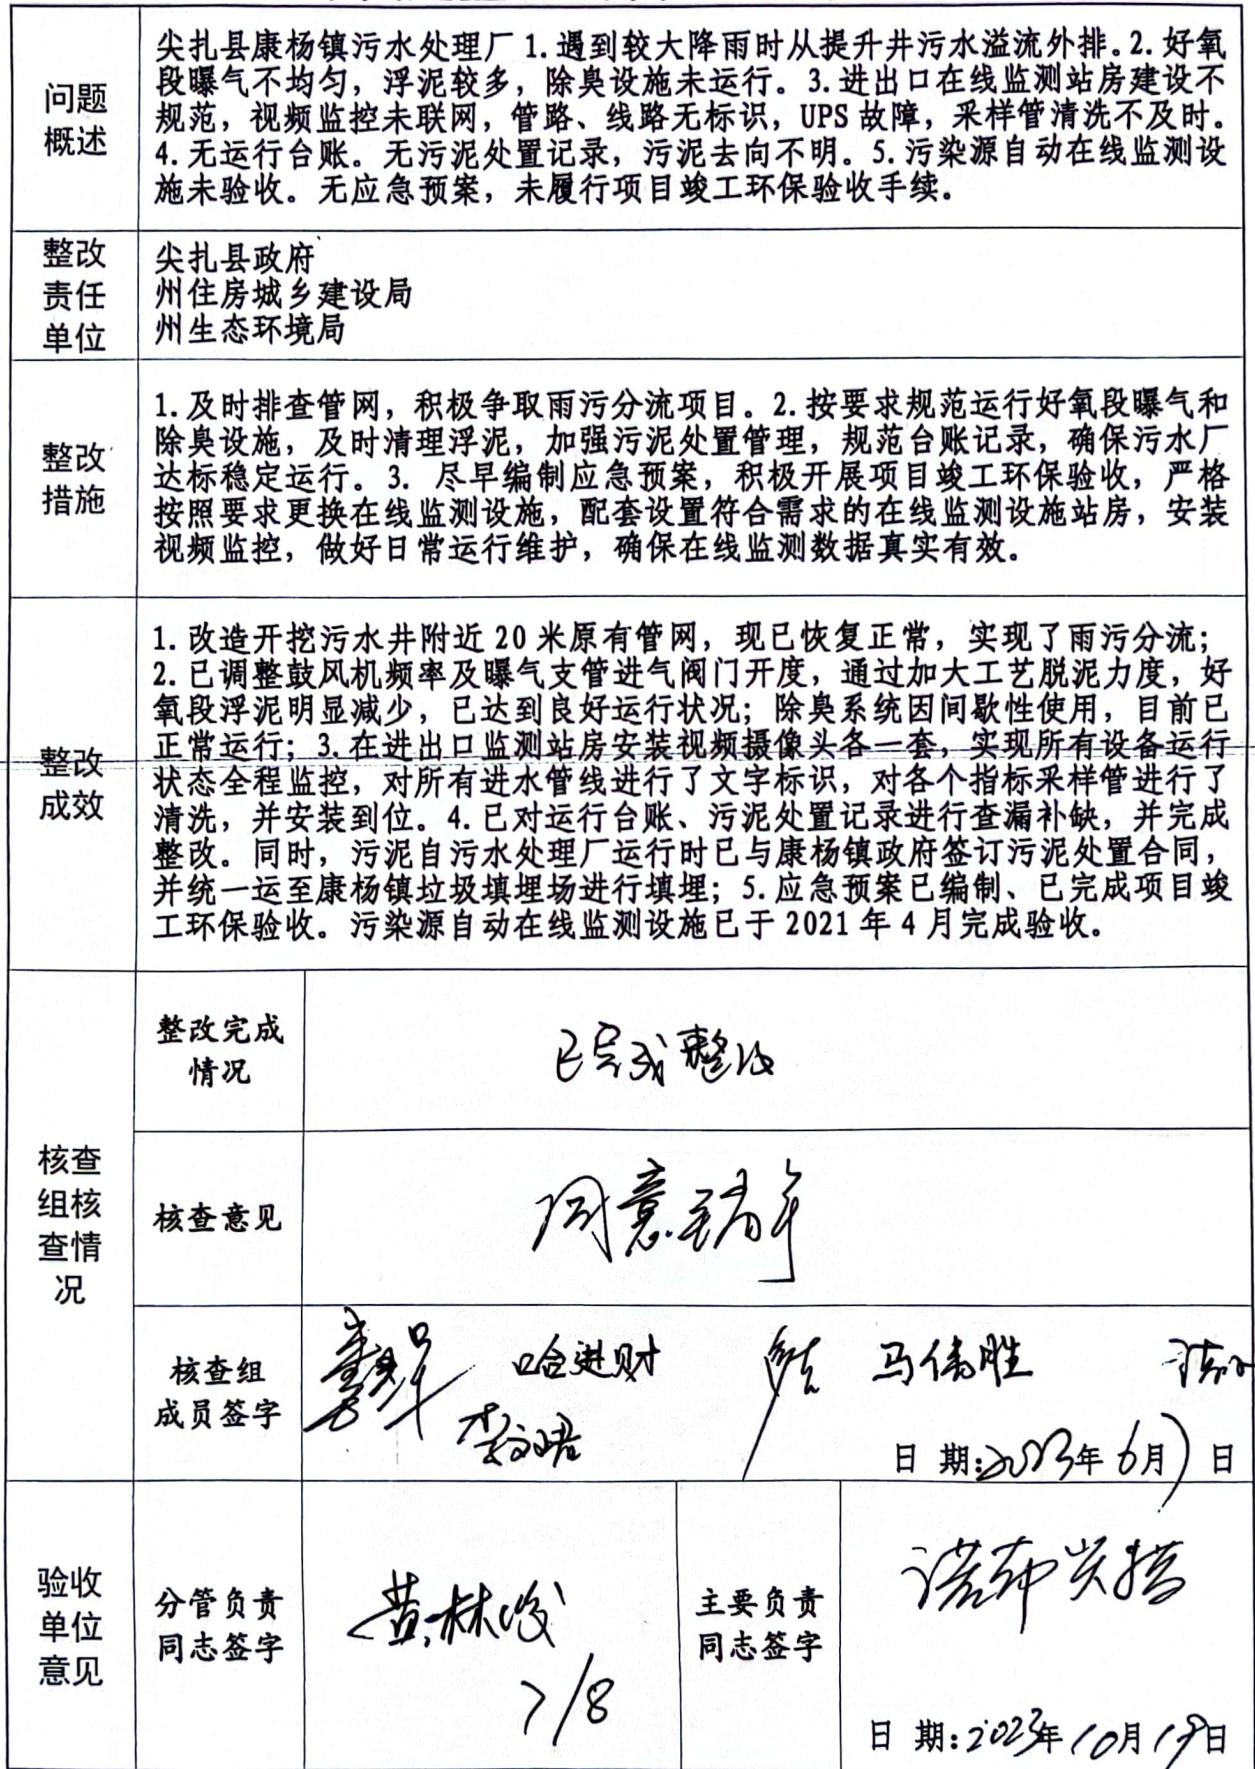 问题
概述
尖扎县康杨镇污水处理厂 1.遇到较大降雨时从提升井污水溢流外排。2.好氧
段曝气不均匀，浮泥较多，除臭设施未运行。3.进出口在线监测站房建设不
规范，视频监控未联网，管路、线路无标识，UPS 故障，采样管清洗不及时。
4.无运行台账。无污泥处置记录，污泥去向不明。5.污染源自动在线监测设
施未验收。无应急预案，未履行项目竣工环保验收手续。
整改
责任
单位
尖扎县政府
州住房城乡建设局
州生态环境局
整改
措施
1.及时排查管网，积极争取雨污分流项目。2.按要求规范运行好氧段曝气和
除臭设施，及时清理浮泥，加强污泥处置管理，规范台账记录，确保污水厂
达标稳定运行。3. 尽早编制应急预案，积极开展项目竣工环保验收，严格
按照要求更换在线监测设施，配套设置符合需求的在线监测设施站房，安装
视频监控，做好日常运行维护，确保在线监测数据真实有效。
整改
成效
1.改造开挖污水井附近 20 米原有管网，现已恢复正常，实现了雨污分流；
2.已调整鼓风机频率及曝气支管进气阀门开度，通过加大工艺脱泥力度，好
氧段浮泥明显减少，已达到良好运行状况；除臭系统因间歇性使用，目前已
正常运行；3.在进出口监测站房安装视频摄像头各一套，实现所有设备运行
状态全程监控，对所有进水管线进行了文字标识，对各个指标采样管进行了
清洗，并安装到位。4.已对运行台账、污泥处置记录进行查漏补缺，并完成
整改。同时，污泥自污水处理厂运行时已与康杨镇政府签订污泥处置合同，
并统一运至康杨镇垃圾填埋场进行填埋；5.应急预案已编制、已完成项目竣
工环保验收。污染源自动在线监测设施已于 2021 年 4 月完成验收。
核查
组核
查情
况
整改完成
情况
已完成整改
核查意见
同意
核查组
成员签字
哈进财
马伟胜
日 期:2023年 6月7日
验收
单位
意见
分管负责
同志签字
黄林俊
7/8
主要负责
同志签字
诺布
日 期:2023年10月19日